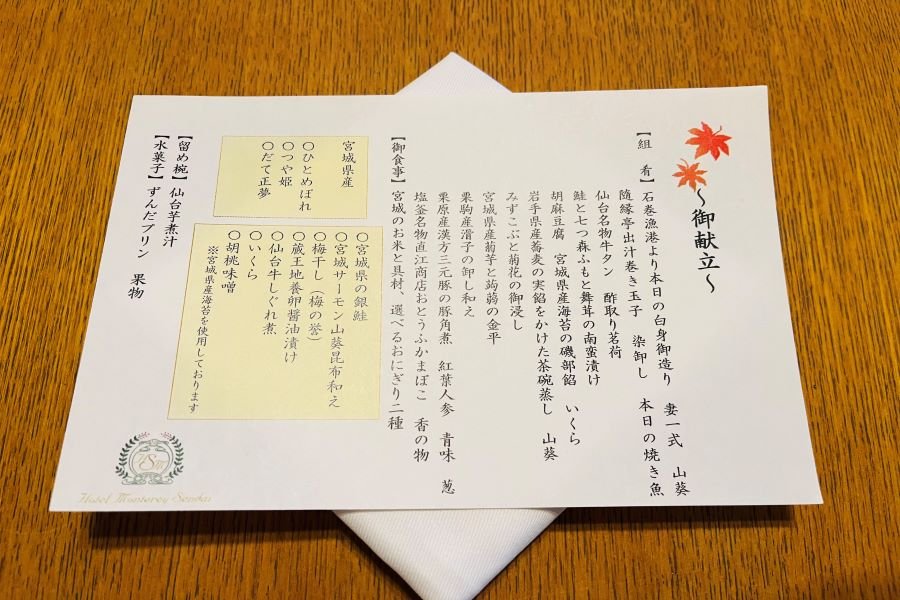 ～御献立～
【組　肴】石巻漁港より本日の白身御造り　妻一式　山葵
隨縁亭出汁巻き玉子　染卸し　本日の焼き魚
仙台名物牛タン　酢取り茗荷
鮭と七つ森ふもと舞茸の南蛮漬け
胡麻豆腐　宮城県産海苔の磯部餡　いくら
岩手県産蕎麦の実餡をかけた茶碗蒸し　山葵
みずこぶと菊花の御浸し
宮城県産菊芋と蒟蒻の金平
栗駒産滑子の卸し和え
栗原産漢方三元豚の豚角煮　紅葉人参　青味　葱
塩釜名物直江商店おとうふかまぼこ　香の物
【御食事】宮城のお米と具材、選べるおにぎり二種
宮城県産
〇ひとめぼれ
〇つや姫
〇だて正夢
〇宮城県の銀鮭
〇宮城サーモン山葵昆布和え
〇梅干し（梅の誉）
〇蔵王地養卵醤油漬け
〇仙台牛しぐれ煮
〇いくら
〇胡桃味噌
※宮城県産海苔を使用しております
【留め椀】仙台芋煮汁
【水菓子】ずんだプリン　果物
Hotel Monterey Sendai